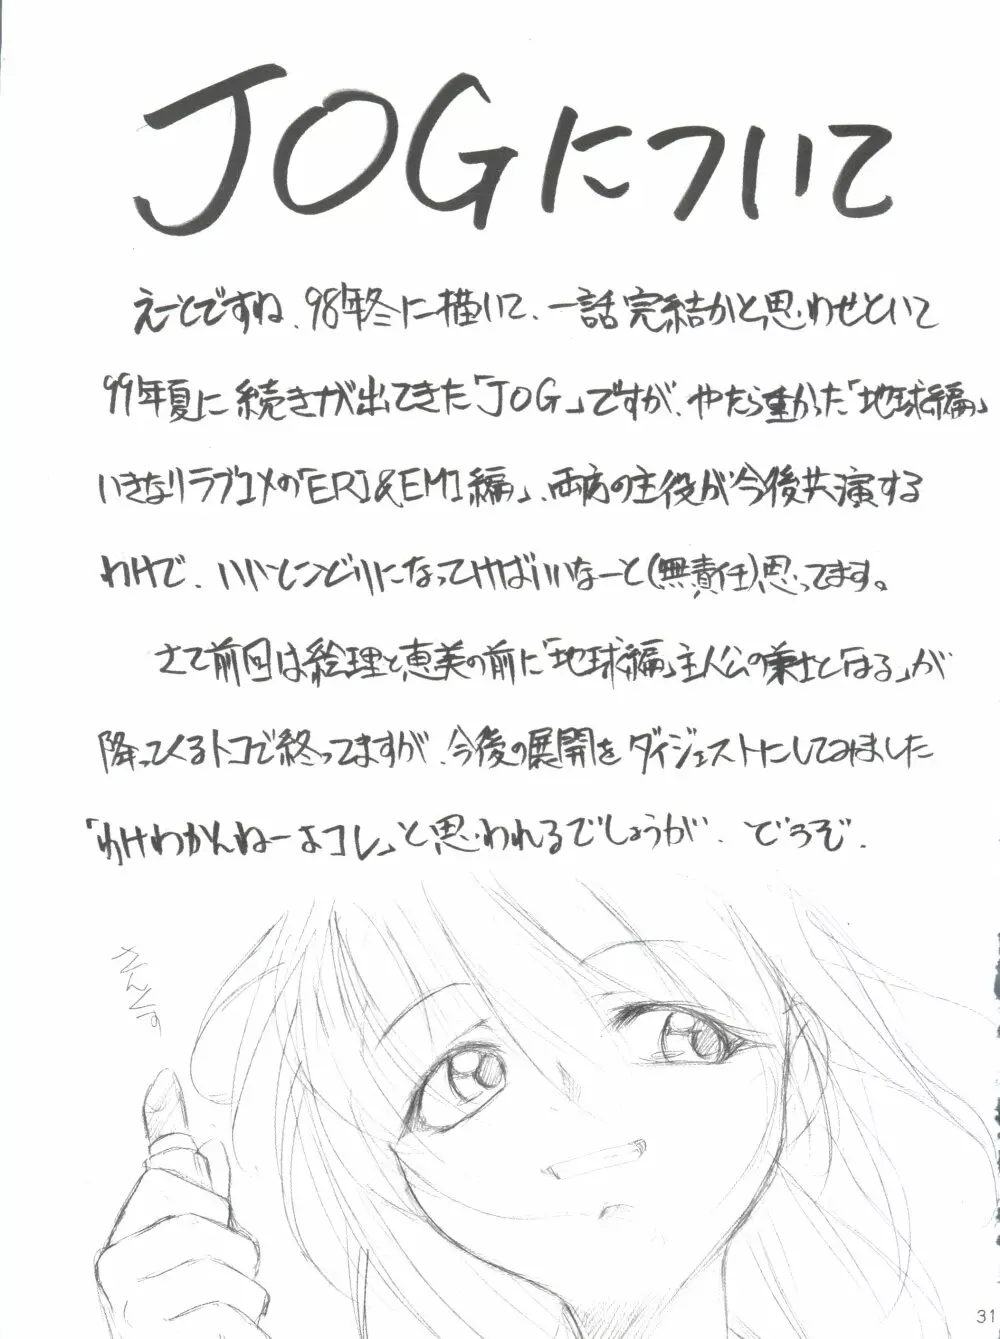 JOGについて
えーとですね、98年冬に描いて、一話完結かと思わせといて
99年夏に続きが出てきた「JOG」ですが、やたら重かった「地球編」
いきなりラブコメの「ERI&EMI編」、両方の主役が今後共演する
わけで、いいとこどりになってけばいいなーと(無責任)思ってます。
さて前回は絵理と恵美の前に「地球編」主人公の兼士と「はる」が
降ってくるトコで終ってますが、今後の展開をダイジェストにしてみました
「わけわかんねーよコレ」と思われるでしょうが、どうぞ、
31